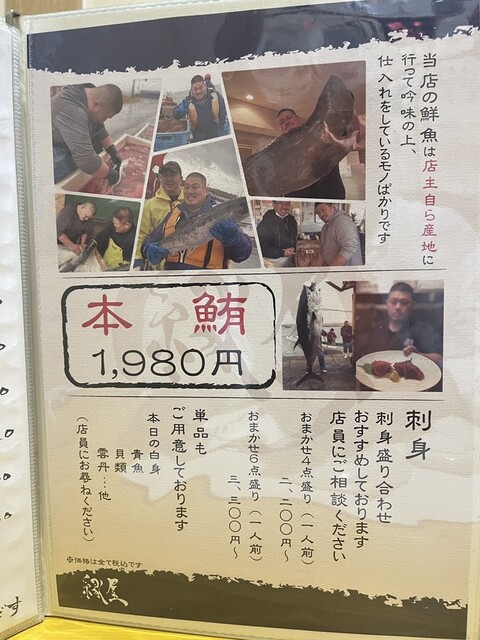 当店の鮮魚は店主自ら産地に
行って吟味の上、
仕入れをしているモノばかりです
本鮪
1,980円
刺身
刺身盛り合わせ
おすすめしております
店員にご相談ください
おまかせ4点盛り(一人前)
二、二〇〇円〜
おまかせ6点盛り(一人前)
三、三〇〇円〜
単品も
ご用意しております
本日の白身
青魚
貝類
雲丹…他
(店員にお尋ねください)
※価格は全て税込です
です